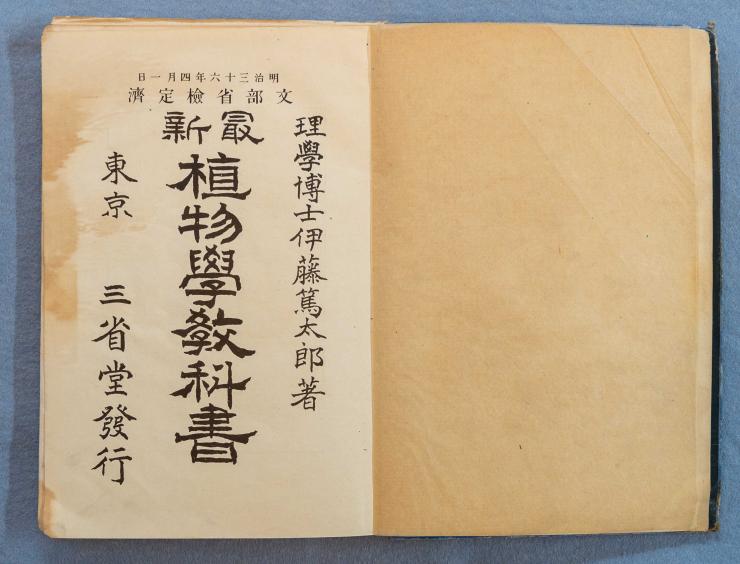 明治三十六年四月一日
文部省檢定濟
理學博士伊藤篤太郎著
最新
植物學敎科書
東京 三省堂發行